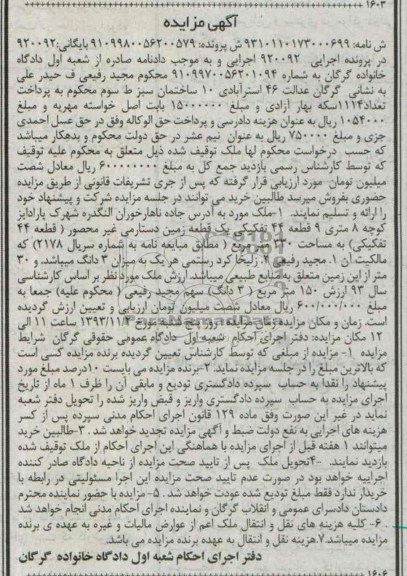 ۱۶۰۳
آگهی مزایده
ش نامه: ۹۳۱۰۱۱۰۱۷۳۰۰۰۶۹۹ ش پرونده: ۹۱۰۹۹۸۰۰۵۶۲۰۰۵۷۹ بایگانی:۹۲۰۰۹۲
در پرونده اجرایی ۹۲۰۰۹۲ اجرایی و به موجب دادنامه صادره از شعبه اول دادگاه
خانواده گرگان به شماره ۹۱۰۹۹۷۰۰۵۶۲۰۱۰۹۴ محکوم مجید رفیعی ف حیدر علی
به نشانی گرگان عدالت ۴۶ استرآبادی ۱۰ ساختمان سبز ط سوم محکوم به پرداخت
تعداد۱۱۱۴سکه بهار آزادی و مبلغ ۱۵۰۰۰۰۰۰ بابت اصل خواسته مهریه و مبلغ
۱۰۵۴۰۰۰ ریال به عنوان هزینه دادرسی و پرداخت حق الوکاله وفق در حق عسل احمدی
جزی و مبلغ ۷۵۰۰۰۰ ریال به عنوان نیم عشر در حق دولت محکوم و بدهکار میباشد
که حسب درخواست محکوم لها ملک توقیف شده ذیل متعلق به محکوم علیه توقیف
که توسط کارشناس رسمی بازدید جمع کل به مبلغ ۶۰۰۰۰۰۰۰۰ ریال معادل شصت
میلیون تومان مورد ارزیابی قرار گرفته که پس از جری تشریفات قانونی از طریق مزایده
حضوری بفروش میرسد طالبین خرید می توانند در جلسه مزایده شرکت و پیشنهاد خود
را ارائه و تسلیم نمایند. ۱-ملک مورد به آدرس جاده ناهارخوران النگدره شهرک پارادایز
کوچه ۸ متری ۹ قطعه ۴۴ تفکیکی یک قطعه زمین دستدارمی غیر محصور ( قطعه ۴۴
تفکیکی) به مساحت ۳۳۰ متر مربع ( مطابق مبایعه نامه به شماره سریال ۲۱۷۸) که
مالکیت آن ۱. مجید رفیعی ۲. زلیخا کرد رستمی هر یک به میزان ۳ دانگ میباشد. و ۳۰
متر از این زمین متعلق به منابع طبیعی میباشد. ارزش ملک مورد نظر بر اساس کارشناسی
سال ۹۳ ارزش ۱۵۰ متر مربع ( ۳ دانگ) سهم مجید رفیعی ( محکوم علیه) جمعا به
مبلغ ۶۰۰/۰۰۰/۰۰۰ ریال معادل شصت میلیون تومان ارزیابی و تعیین ارزش گردیده
است. زمان و مکان مزایده: زمان مزایده: مورخ ۱۳۹۳/۱۱/۴ ساعت ۱۱ الی
۱۲ مکان مزایده: دفتر اجرای احکام شعبه اول دادگاه عمومی حقوقی گرگان شرایط
مزایده ۱- مزایده از مبلغی که توسط کارشناس تعیین گردیده برنده مزایده کسی است
که بالاترین مبلغ را در جلسه مزایده نماید. ۲-برنده مزایده می بایست ۱۰درصد مبلغ مورد
پیشنهاد را نقدا به حساب سپرده دادگستری تودیع و مابقی آن را ظرف ۱ ماه از تاریخ
اجرای مزایده به حساب سپرده دادگستری واریز و قبض واریز شده را تحویل دفتر شعبه
نماید در غیر این صورت وفق ماده ۱۲۹ قانون اجرای احکام مدنی سپرده پس از کسر
هزینه های اجرایی به نفع دولت ضبط و آگهی مزایده تجدید خواهد شد. ۳-طالبین خرید
میتوانند ۱ هفته قبل از اجرای مزایده با هماهنگی این اجرای احکام از ملک توقیف شده
بازدید نمایند. ۴-تحویل ملک پس از تایید صحت مزایده از ناحیه دادگاه صادر کننده
اجراییه خواهد بود در صورت عدم تایید صحت مزایده این اجرا مسئولیتی در رابطه با
خریدار ندارد فقط مبلغ تودیع شده عودت خواهد شد. ۵- مزایده با حضور نماینده محترم
دادستان دادسرای عمومی و انقلاب گرگان و نماینده اجرای احکام مدنی انجام خواهد شد
۶- کلیه هزینه های نقل و انتقال ملک اعم از عوارض مالیات و غیره به عهده ی برنده
مزایده میباشد.۷.هزینه نقل و انتقال به عهده برنده مزایده می باشد.
دفتر اجرای احکام شعبه اول دادگاه خانواده گرگان
۱۶۰۶